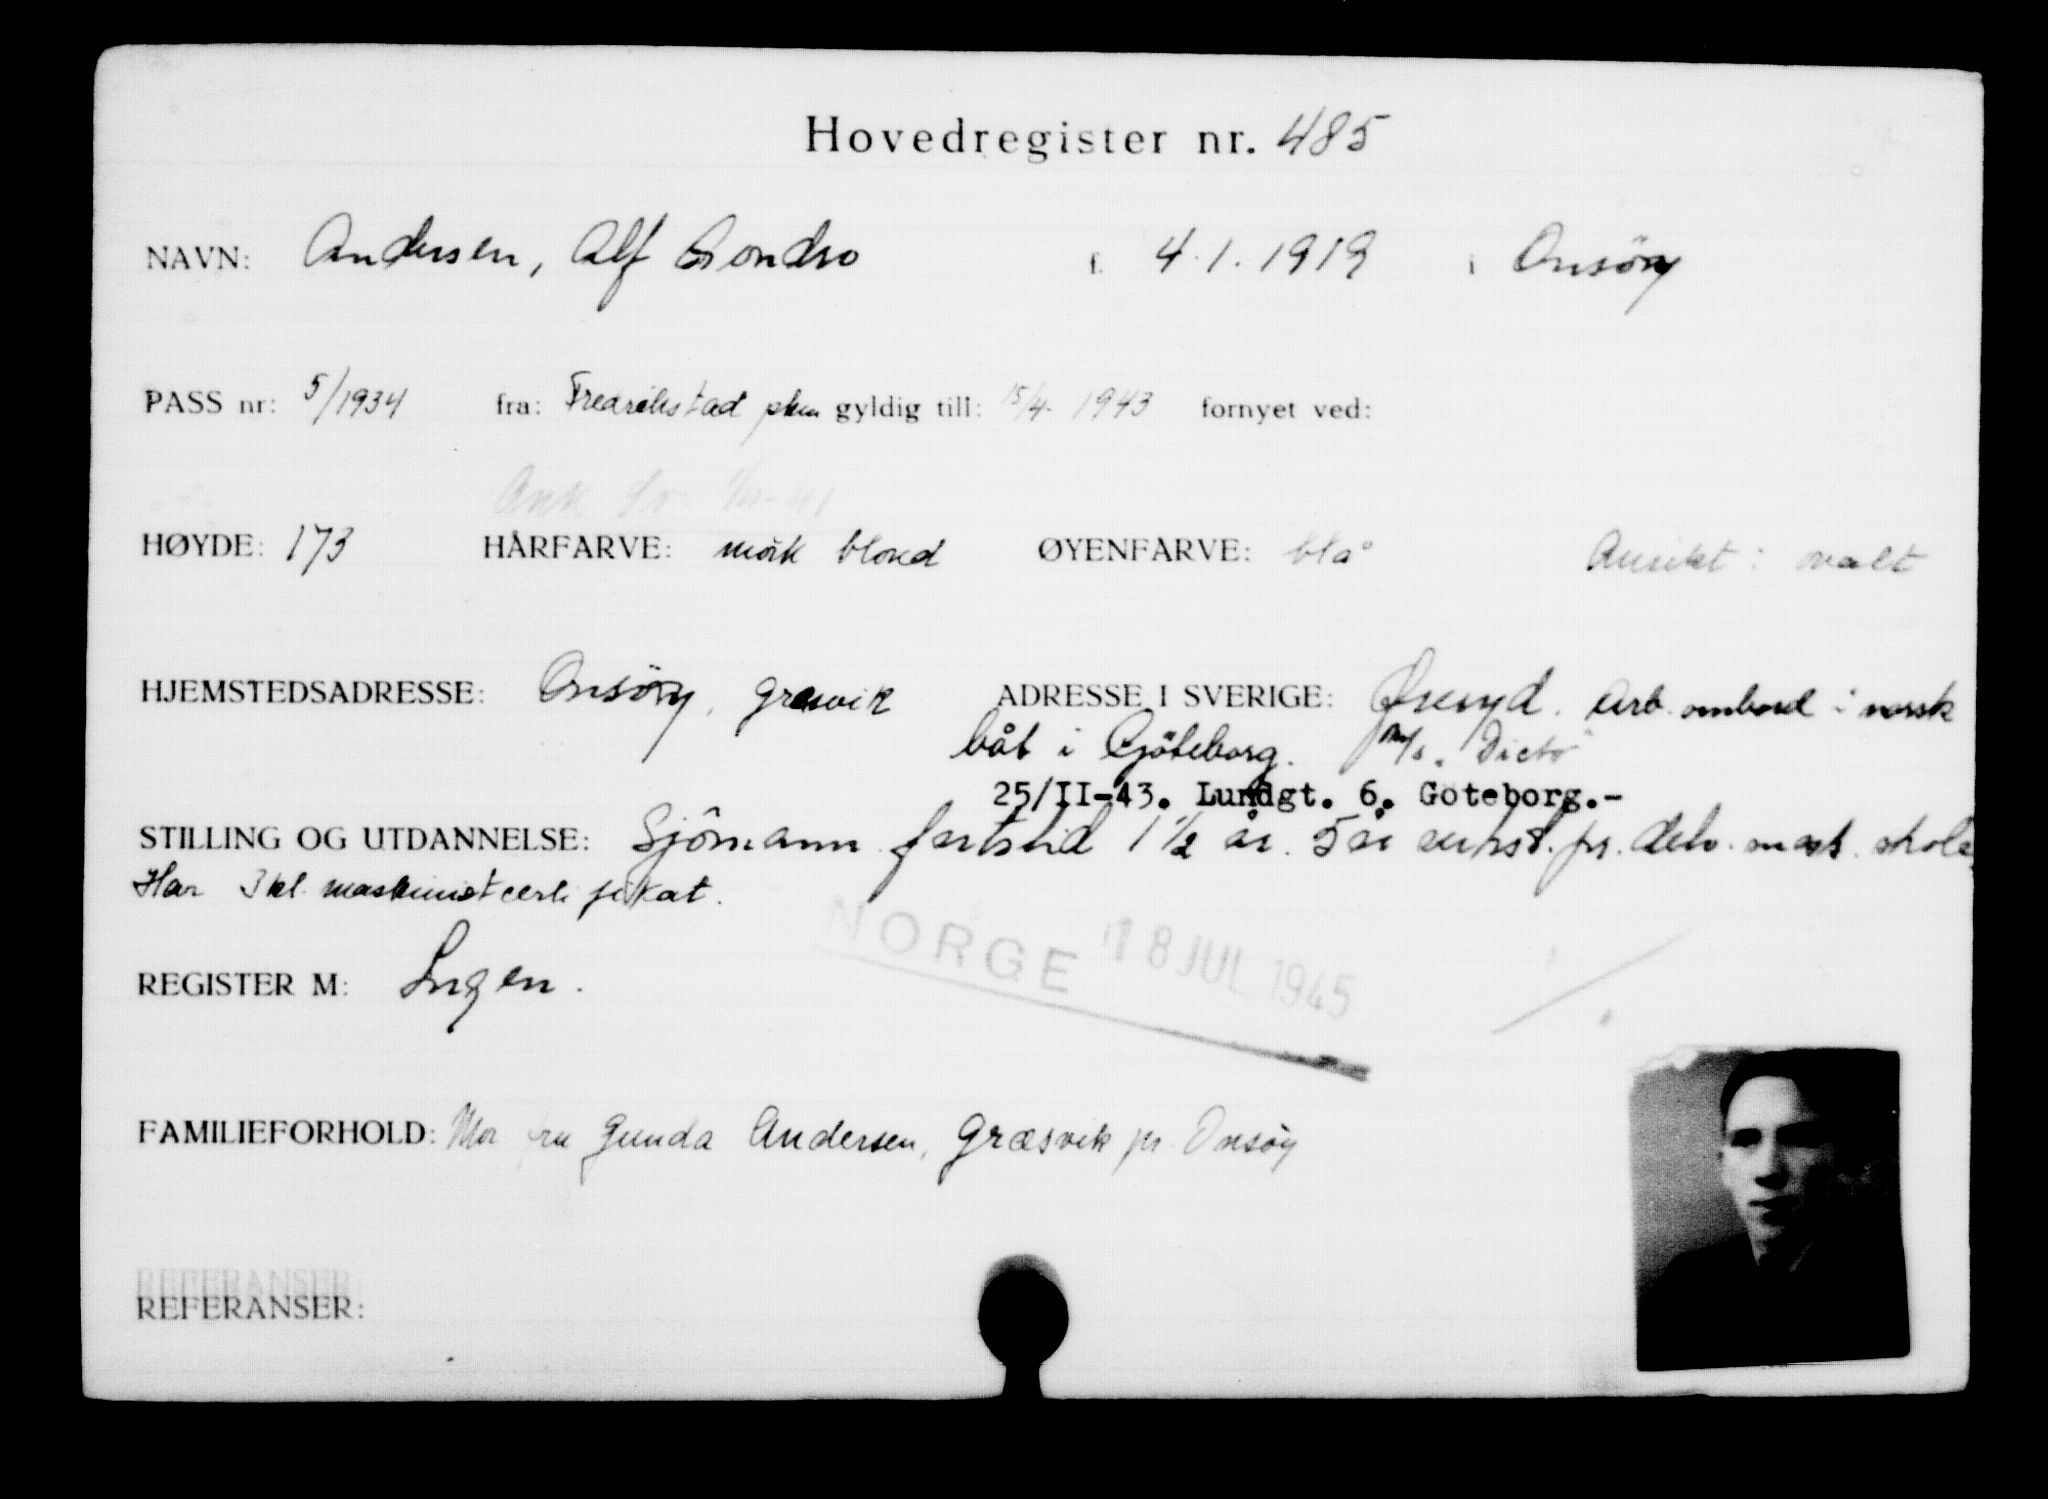 Hovedregister nr. 485
NAVN: Andersen, Alf Sondro f. 4.1.1919 i Onsöy
PASS nr: 5/1934 fra: Fredrikstad pkm gyldig till: 15/4. 1943 fornyet ved:
Ank Sv. 41
HØYDE: 173 HÅRFARVE: mörk blond ØYENFARVE: blå Ansikt: ovalt
HJEMSTEDSADRESSE: Onsöy, Græsvik ADRESSE I SVERIGE: Öreryd. Arb. ombord i norsk
båt i Göteborg. M/s. "Dicto"
25/II-43. Lundgt. 6. Göteborg.-
STILLING OG UTDANNELSE: Sjömann fartstid 1 1/2 år. 5 år verkst. pr. delv. mask. skole
Har 3 kl. maskinistcertifikat.
NORGE 18 JUL 1945
REGISTER M: Ingen.
FAMILIEFORHOLD: Mor fru Gunda Andersen, Græsvik pr. Onsöy
REFERANSER
REFERANSER: